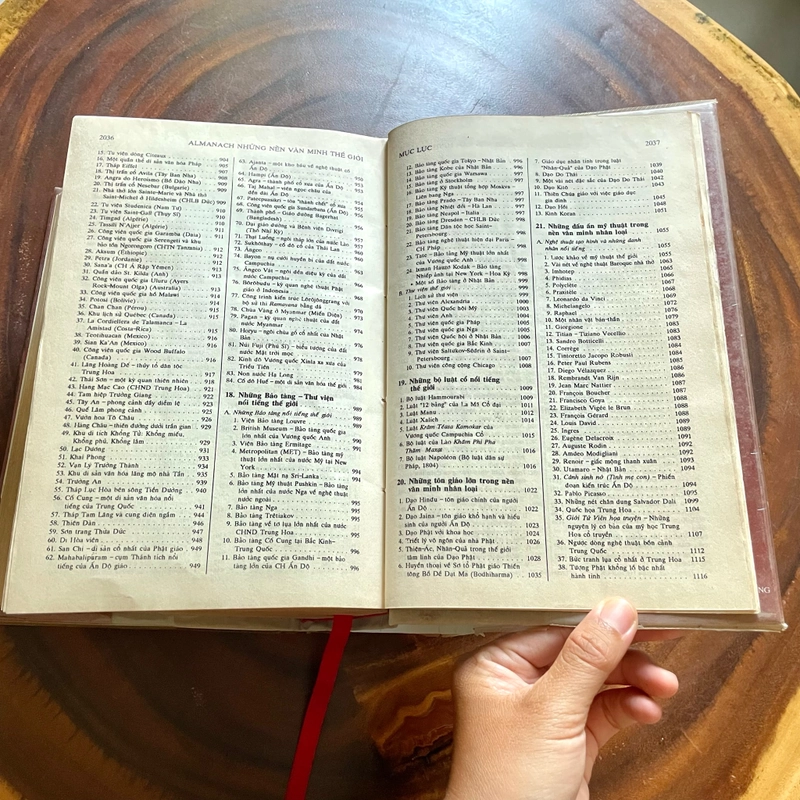 2036
ALMANACH NHỮNG NỀN VĂN MINH THẾ GIỚI
15. Tu viện dòng Citeaux
16. Một quần thể di sản văn hóa Pháp . . 904
17. Tháp Eiffel 905
18. Thị trấn cổ Avila (Tây Ban Nha) 907
19. Angra do Heroismo (Bồ Đào Nha) 908
20. Thị trấn cổ Nesebar (Bulgarie) 908
21. Nhà thờ lớn Sainte-Marie và Nhà thờ
Saint-Michel ở Hildesheim (CHLB Đức) 909
22. Tu viện Studenica (Nam Tư)
23. Tu viện Saint-Gall (Thụy Sĩ) 910
24. Timgad (Algérie)
25. Tassili N'Ajjer (Algérie)
26. Công viên quốc gia Garamba (Daia) 911
27. Công viên quốc gia Serengeti và khu
bảo tồn Ngorongoro (CHTN Tanzania)
28. Aksum (Ethiopie) 912
29. Petra (Jordanie)
30. Sana'a (CH Ả Rập Yémen) 913
31. Quần đảo St. Kilda (Anh) 913
32. Công viên quốc gia Uluru (Ayers
Rock-Mount Olga) (Australia) 913
33. Công viên quốc gia hồ Malawi 914
34. Potosi (Bolivie) 914
35. Chan Chan (Pérou) 915
36. Khu lịch sử Québec (Canada) 915
37. La Cordiellera de Talamanca – La
Amistad (Costa-Rica) 915
38. Teotihuacan (Mexico) 916
39. Sian Ka'An (Mexico)
40. Công viên quốc gia Wood Buffalo
(Canada) 916
41. Lăng Hoàng Đế – thủy tổ dân tộc
Trung Hoa 917
42. Thái Sơn – một kỳ quan thiên nhiên 918
43. Hang Mạc Cao (CHND Trung Hoa) 921
44. Tam hiệp Trường Giang 922
45. Tây An – phong cảnh đầy diễm lệ 923
46. Quế Lâm phong cảnh 925
47. Vườn hoa Tô Châu 926
48. Hàng Châu – thiên đường dưới trần gian 929
49. Khu di tích Khổng Tử: Khổng miếu,
Khổng phủ, Khổng lâm 929
50. Lạc Dương 931
51. Khai Phong 933
52. Vạn Lý Trường Thành 934
53. Khu di sản văn hóa lăng mộ nhà Tần 935
54. Trường An 939
55. Tháp Lục Hòa bên sông Tiền Đường 940
56. Cố Cung – một di sản văn hóa nổi
tiếng của Trung Quốc 941
57. Tháp Tam Lăng và cung điện ngầm 944
58. Thiên Đàn 946
59. Sơn trang Thừa Đức 947
60. Di Hòa viên 948
61. San Chi – di sản cổ nhất của Phật giáo 949
62. Mahabalipuram – cụm Thánh tích nổi
tiếng của Ấn Độ giáo 949
63. Ajanta – một kho báu về nghệ thuật cổ
Ấn Độ
64. Hampi (Ấn Độ) 953
65. Agra – thành phố cổ xưa của Ấn Độ 953
66. Taj Mahal – viên ngọc châu của
đền đài Ấn Độ 954
67.
68. Công viên quốc gia Sundarbans (Ấn Độ)
69. Thành phố – Giáo đường Bagerhat
(Bangladesh)
70. Đại giáo đường và Bệnh viện Dovrigi
(Thổ Nhĩ Kỳ)
71. Thạt Luổng – ngôi tháp lớn của nước Lào
72. Sukhôthay – cố đô cổ của Thái Lan
73. Ăngco
74. Bayon – nụ cười huyền bí của đất nước
Campuchia
75. Ăngco Vát – ngôi đền diệu kỳ của đất
nước Campuchia
76. Bôrôbuđu – kỳ quan nghệ thuật Phật
giáo ở Indonesia
77. Công trình kiến trúc Lôrôjônggrang với
bộ sử thi Ramayana bằng đá
78. Chùa Vàng ở Myanmar (Miến Điện)
79. Pagan – kỳ quan nghệ thuật của đất
nước Myanmar
80. Horyu – ngôi chùa gỗ cổ nhất của Nhật
Bản
81. Núi Fuji (Phú Sĩ) – biểu tượng của đất
nước Mặt trời mọc
82. Kinh đô Vương quốc Xinla xa xưa của
Triều Tiên
83. Non nước Hạ Long
84. Cố đô Huế – một di sản văn hóa thế giới 984
18. Những Bảo tàng – Thư viện
nổi tiếng thế giới 989
A. Những Bảo tàng nổi tiếng thế giới 989
1. Viện Bảo tàng Louvre 989
2. British Museum – Bảo tàng quốc gia
lớn nhất của Vương quốc Anh 991
3. Viện Bảo tàng Ermitage 991
4. Metropolitan (MET) – Bảo tàng mỹ
thuật lớn nhất của nước Mỹ tại New
York 994
5. Bảo tàng Mặt nạ Sri-Lanka 994
6. Bảo tàng Mỹ thuật Pushkin – Bảo tàng
lớn nhất của nước Nga về nghệ thuật
nước ngoài 994
7. Bảo tàng Nga 995
8. Bảo tàng Trétiakov 995
9. Bảo tàng về tơ lụa lớn nhất của nước
CHND Trung Hoa 995
10. Bảo tàng Cố Cung tại Bắc Kinh–
Trung Quốc 995
11. Bảo tàng quốc gia Gandhi – một bảo
tàng lớn của CH Ấn Độ 996
MỤC LỤC
2037
12. Bảo tàng quốc gia Tokyo – Nhật Bản 996
13. Bảo tàng Kobe của Nhật Bản 996
14. Bảo tàng quốc gia Warsawa 996
15. Bảo tàng ở Stockholm 997
16. Bảo tàng Kỹ thuật tổng hợp Moskva –
Liên bang Nga 997
17. Bảo tàng Prado – Tây Ban Nha 997
18. Bảo tàng Nhiệt đới – Hà Lan 997
19. Bảo tàng Neapol – Italia 997
20. Bảo tàng Dresden – CHLB Đức 998
21. Bảo tàng Dân tộc học Saint-
Petersbourg 998
22. Bảo tàng nghệ thuật hiện đại Paris –
CH Pháp 998
23. Tate – Bảo tàng Mỹ thuật lớn nhất
của Vương quốc Anh 998
24. Isman Hauzơ Kodak – Bảo tàng
Nhiếp ảnh tại New York – Hoa Kỳ 998
* Một số Bảo tàng ở Nhật Bản 998
B. Thư viện thế giới 999
1. Lịch sử thư viện 999
2. Thư viện Alexandria 1000
3. Thư viện Quốc hội Mỹ 1003
4. Thư viện Anh 1004
5. Thư viện quốc gia Pháp 1005
6. Thư viện quốc gia Nga 1006
7. Thư viện Quốc hội ở Nhật Bản 1006
8. Thư viện quốc gia Bắc Kinh 1007
9. Thư viện Saltukov-Sêđrin ở Saint-
Petersbourg 1007
10. Thư viện công cộng Chicago 1008
19. Những bộ luật cổ nổi tiếng
thế giới 1009
1. Bộ luật Hammourabi 1009
2. Luật "12 bảng" của La Mã Cổ đại 1011
3. Luật Manu 1012
4. Luật Xalích 1014
5. Luật Krăm Têana Kamokar của
Vương quốc Campuchia Cổ 1015
6. Bộ luật của Lào Khăm Phi Phụ
Thăm Maxat 1015
7. Bộ luật Napoléon (Bộ luật dân sự
Pháp, 1804) 1016
20. Những tôn giáo lớn trong nền
văn minh nhân loại 1022
1. Đạo Hindu – tôn giáo chính của người
Ấn Độ 1022
2. Đạo Jaina – tôn giáo khổ hạnh và hiếu
sinh của người Ấn Độ 1023
3. Đạo Phật với khoa học 1024
4. Triết lý vô ngôn của nhà Phật 1026
5. Thiện-Ác, Nhân-Quả trong thế giới
tâm linh của Đạo Phật 1028
6. Huyền thoại về Sơ tổ Phật giáo Thiền
tông Bồ Đề Đạt Ma (Bodhiharma) 1035
7. Giáo dục nhân tính trong luật
"Nhân-Quả" của Đạo Phật 1039
8. Đạo Do Thái 1040
9. Một vài nét đặc sắc của Đạo Do Thái 1042
10. Đạo Kitô 1043
11. Thiên Chúa giáo với việc giáo dục
gia đình 1045
12. Đạo Hồi 1048
13. Kinh Koran 1051
21. Những dấu ấn mỹ thuật trong
nền văn minh nhân loại 1055
A. Nghệ thuật tạo hình và những danh
nhân nổi tiếng 1055
1. Lược khảo về mỹ thuật thế giới 1055
2. Vài nét về nghệ thuật Baroque nhà thờ 1063
3. Imhotep 1065
4. Phidias 1065
5. Polyclète 1067
6. Praxitèle 1068
7. Leonardo da Vinci 1069
8. Michelangelo 1072
9. Raphael 1076
10. Một nhân vật bán-thần 1079
11. Giorgione 1083
12. Titian – Tiziano Vocellio 1083
13. Sandro Botticelli 1083
14. Corrège 1084
15. Timoretto Jacopo Robusti 1084
16. Peter Paul Rubens 1085
17. Diego Vélazquez 1086
18. Rembrandt Van Rijn 1086
19. Jean Marc Nattier 1087
20. François Boucher 1087
21. Francisco Goya 1088
22. Elizabeth Vigée le Brun 1088
23. François Gérard 1088
24. Louis David 1089
25. Ingres 1089
26. Eugène Delacroix 1091
27. Auguste Rodin 1092
28. Amdeo Modigliani 1092
29. Renoir – giấc mộng thanh xuân 1093
30. Utamaro – Nhật Bản 1094
31. Cảnh sinh tử (Tình mẹ con) – Phiên
đoạn kiến trúc Ấn Độ 1094
32. Pablo Picasso 1095
33. Những nét chân dung Salvador Dali 1099
34. Quốc họa Trung Hoa 1104
35. Giới Tử Viên họa truyện – Những
nguyên lý cơ bản của mỹ học Trung
Hoa cổ truyền 1107
36. Ngược dòng nghệ thuật bốn cảnh
Trung Quốc 1112
37. Bức tranh lụa cổ nhất ở Trung Hoa 1115
38. Tượng Phật khổng lồ bậc nhất
hành tinh 1116